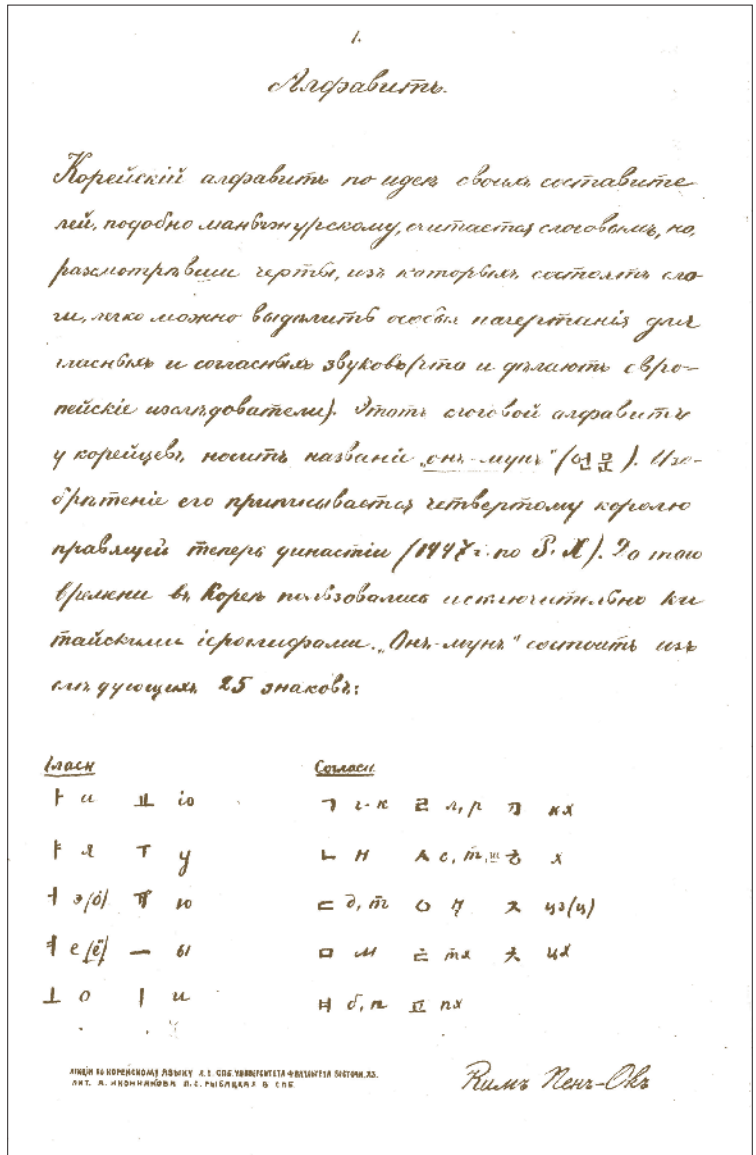 1.
Алфавитъ.
Корейскій алфавитъ по идеѣ своихъ составите
лей, подобно маньчжурскому, считается слоговымъ, но,
разсмотрѣвши черты, изъ которыхъ состоятъ сло-
ги, легко можно выдѣлить особыя начертанія для
гласныхъ и согласныхъ звуковъ (что и дѣлаютъ евро-
пейскіе изслѣдователи). Этотъ слоговой алфавитъ
у корейцевъ носитъ названіе „онъ-мунъ" (언문). Изо-
брѣтеніе его приписывается четвертому королю
правящей теперь династіи (1447 г. по Р. Х). До того
времени въ Кореѣ пользовались исключительно ки
тайскими іероглифами. „Онъ-мунъ" состоитъ изъ
слѣдующихъ 25 знаковъ:
Гласн Согласн.
ㅏ а ㅛ іо ㄱ г-к ㄹ л, р ㅋ кх
ㅑ я ㅜ у ㄴ н ㅅ с, т, ш ㅎ х
ㅓ э (о) ㅠ ю ㄷ д, т ㅇ ӈ ㅈ цз (ц)
ㅕ е (ё) ㅡ ы ㅁ м ㅌ тх ㅊ цх
ㅗ о ㅣ и ㅂ б, п ㅍ пх
ЛЕКЦІИ ПО КОРЕЙСКОМУ ЯЗЫКУ СПБ. УНИВЕРСИТЕТА ФАКУЛЬТЕТА ВОСТОЧН. ЯЗ.
ЛИТ. А. ИКОННИКОВА П. С. РЫБАЦКАЯ 8 СПБ
Кимъ Пенъ-Окъ